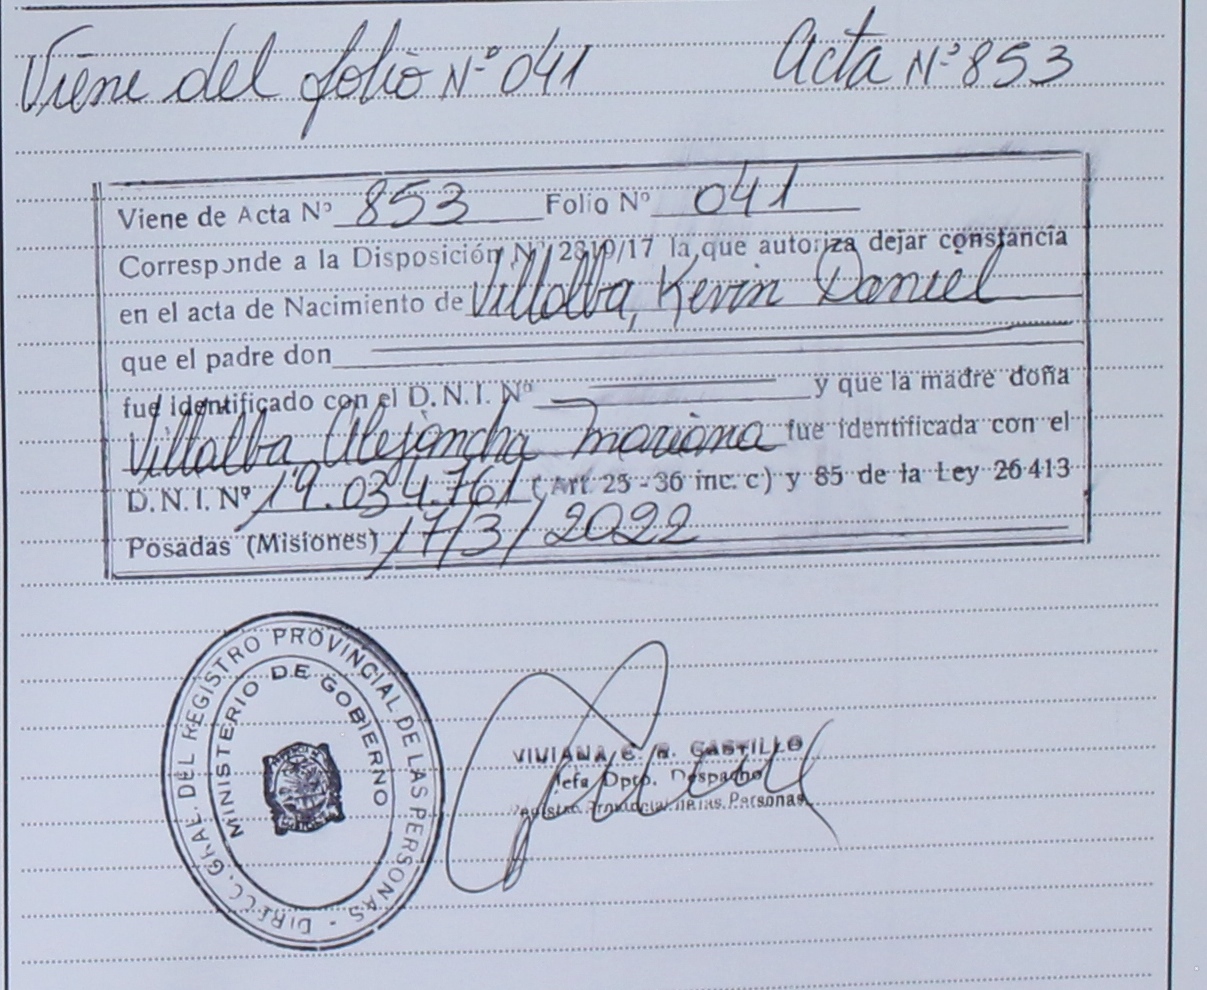 Viene del folio Nº 041 Acta Nº 853
Viene de Acta Nº 853 Folio Nº 041
Corresponde a la Disposición Nº 2819/17 la que autoriza dejar constancia
en el acta de Nacimiento de Villalba, Kevin Daniel
que el padre don
fue identificado con el D.N.I. Nº y que la madre doña
Villalba Alejandra Mariana fue identificada con el
D.N.I. Nº 19.034.761 (Art. 25 - 36 inc. c) y 85 de la Ley 26413
Posadas (Misiones) 17/3/2022
DIRECC. GRAL. DEL REGISTRO PROVINCIAL DE LAS PERSONAS -
MINISTERIO DE GOBIERNO
VIVIANA E. R. CASTILLO
Jefa Dpto. Despacho
Registro Provincial de las Personas